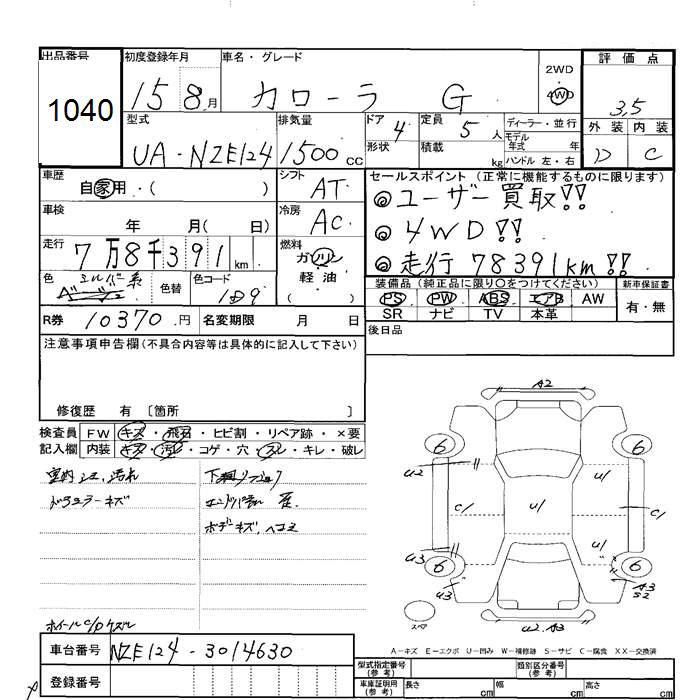 出品番号
1040
初度登録年月
15 8月
車名・グレード
カローラ G
2WD
4WD
評価点
3.5
外装 内装
D C
型式
UA-NZE124
排気量
1500cc
ドア 4
形状
定員 5人
積載 kg
ディーラー・並行
モデル年式 年
ハンドル 左・右
車歴
自家用・( )
シフト
AT
セールスポイント(正常に機能するものに限ります)
◎ユーザー買取!!
◎4WD!!
◎走行78391km!!
車検
年 月( 日)
冷房
AC
走行
7万8千391km
燃料
ガソリン
軽油
( ・ )
色
シルバー系
色替
色コード
1D9
装備品(純正品に限り○をつけてください)
PS PW ABS エアB AW
SR ナビ TV 本革
新車保証書
有・無
R券 10370円
名変期限 月 日
後日品
注意事項申告欄(不具合内容等は具体的に記入して下さい)
修復歴 有〔箇所 〕
検査員記入欄
FW キズ・飛石・ヒビ割・リペア跡・×要
内装 キズ・汚れ・コゲ・穴・スレ・キレ・破レ
室内シミ、汚れ
キズ
ボデーキズ、ヘコミ
A2
6 6
U2
C/ U/ C/
U/
U3
6 6
U3
A3
S2
U2.A3
スペア
A-キズ E-エクボ U-凹み W-補修跡 S-サビ C-腐食 XX-交換済
車台番号
NZE124-3014630
登録番号
型式指定番号(参考)
類別区分番号(参考)
車庫証明用(参考)
長さ cm 幅 cm 高さ cm